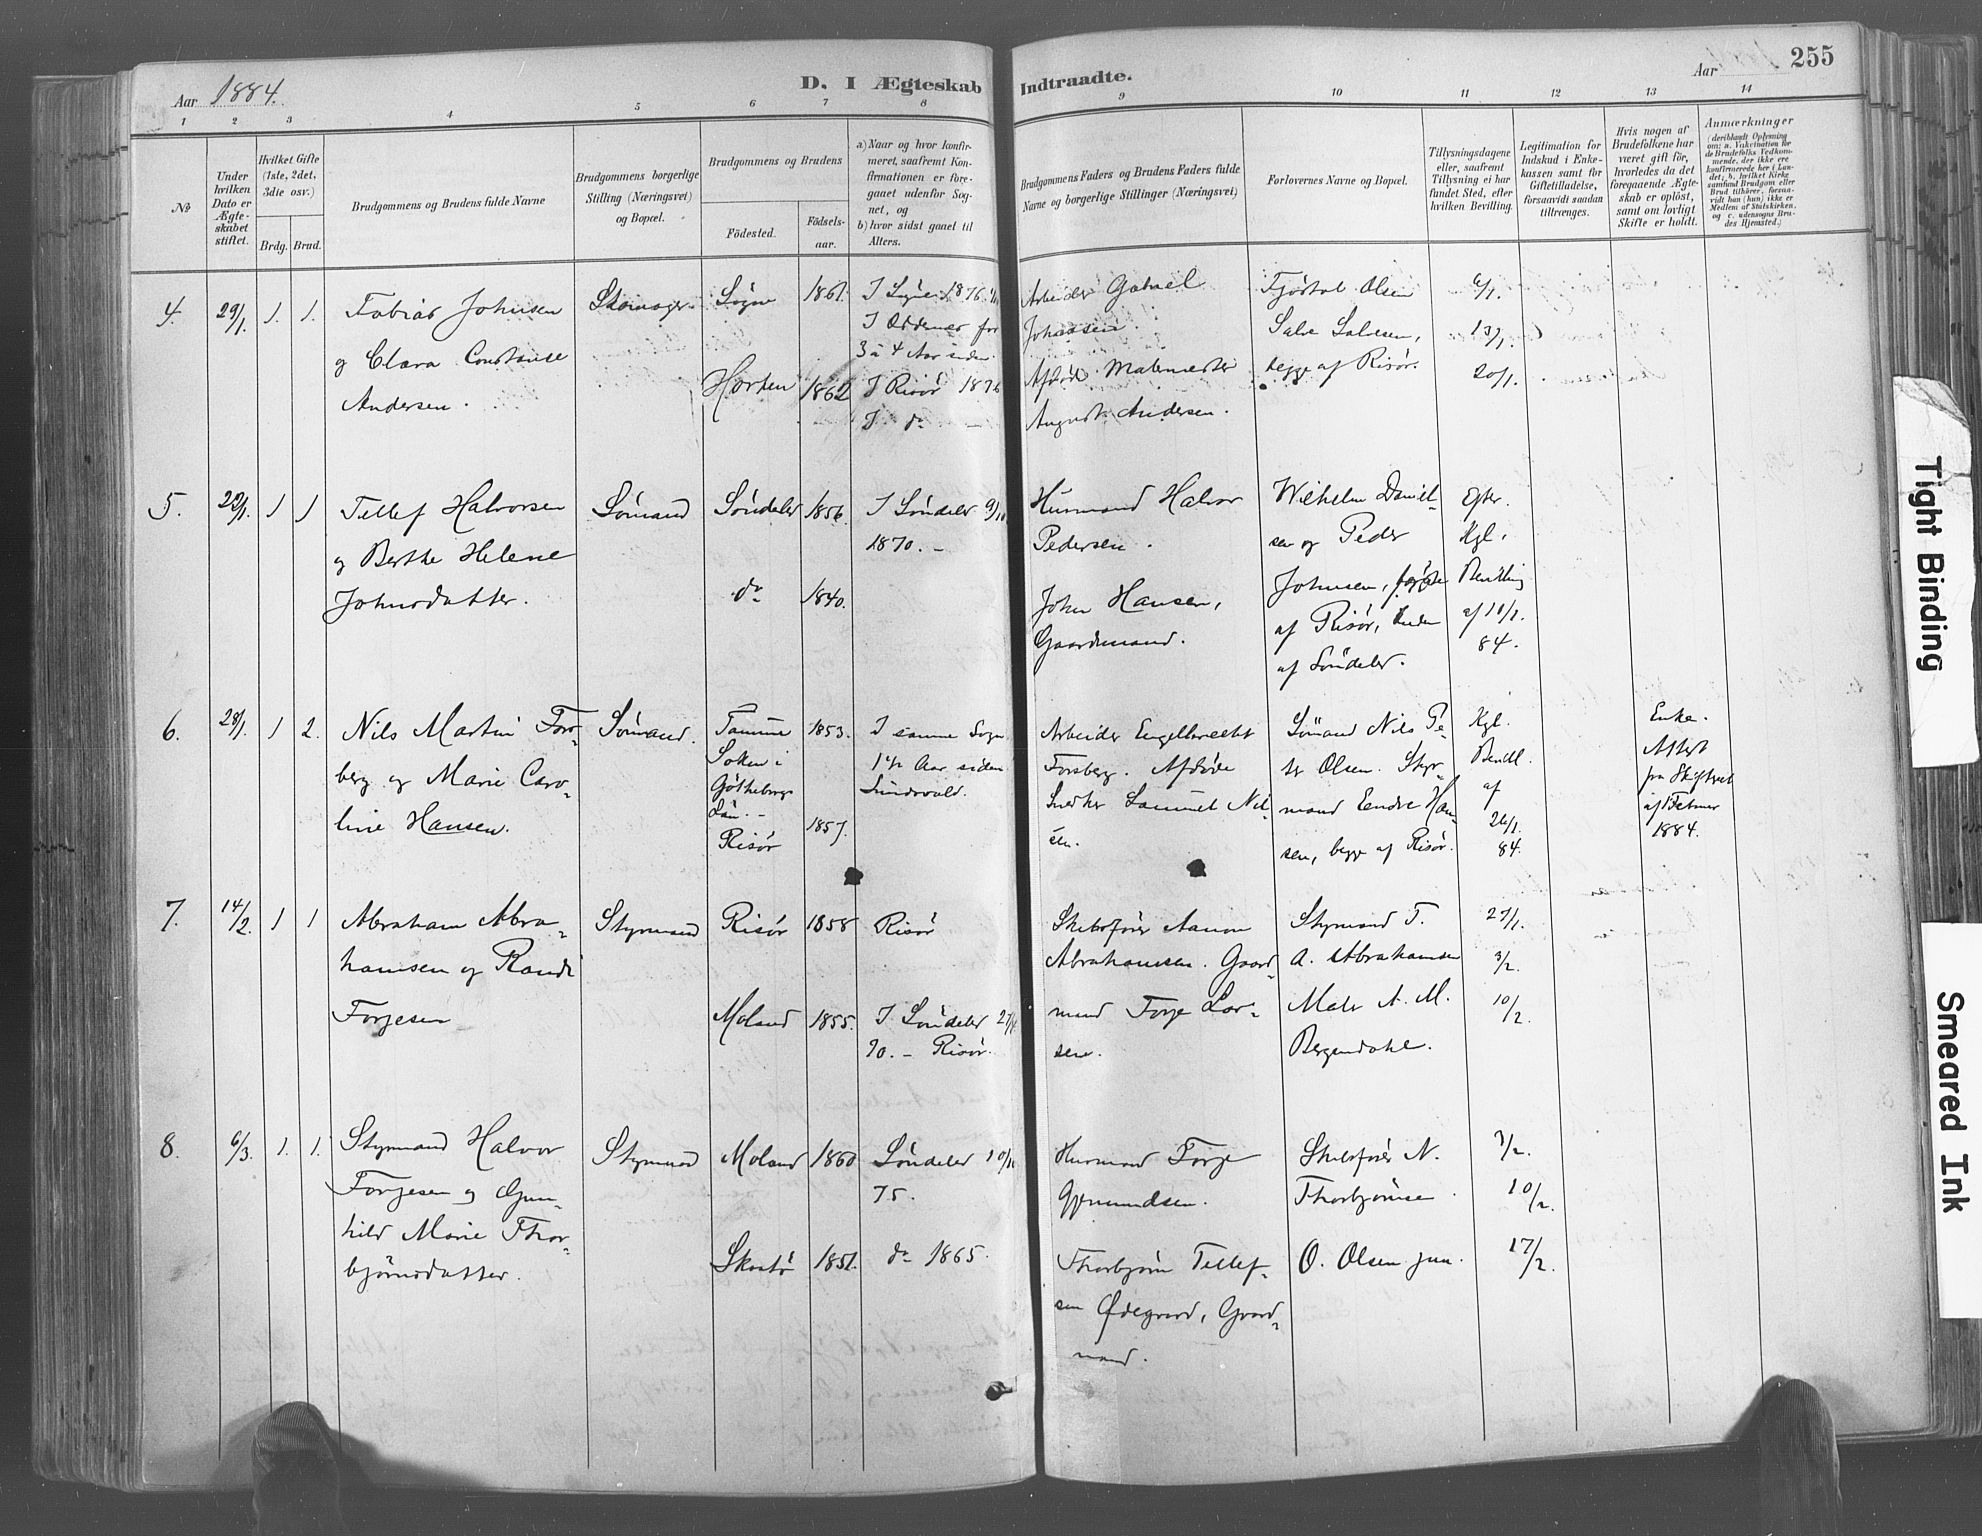 Aar 1884.
D. I Ægteskab Indtraadte.
Aar
255
1 2 3 4 5 6 7 8 9 10 11 12 13 14
No
Under hvilken Dato er Ægteskabet stiftet.
Hvilket Gifte (1ste, 2det, 3die osv.)
Brdg. Brud.
Brudgommens og Brudens fulde Navne
Brudgommens borgerlige Stilling (Næringsvei) og Bopæl.
Brudgommens og Brudens
Födested.
Födsels-aar.
a) Naar og hvor konfirmeret, saafremt Konfirmationen er foregaaet udenfor Sognet, og
b) hvor sidst gaaet til Alters.
Brudgommens Faders og Brudens Faders fulde Navne og borgerlige Stillinger (Næringsvei)
Forlovernes Navne og Bopæl.
Tillysningsdagene eller, saafremt Tillysning ei har fundet Sted, efter hvilken Bevilling.
Legitimation for Indskud i Enkekassen samt for Giftetilladelse, forsaavidt saadan tiltrænges.
Hvis nogen af Brudefolkene har været gift för, hvorledes da det foregaaende Ægteskab er oplöst, samt om lovligt Skifte er holdt.
Anmærkninger
(deriblandt Oplysning om: a. Vakcination for de Brudefolks Vedkommende, der ikke ere konfirmerede her i Landet; b. hvilket Kirkesamfund Brudgom eller Brud tilhörer, forsaavidt han (hun) ikke er Medlem af Statskirken, og c. udensogns Brudes Hjemsted.)
4. 29/1. 1. 1.
Tobias Johnsen
og Clara Constanse
Andersen.
Skomager
Sögne 1861.
Horten 1862
I Sögne 1876
I Oddernes for
3 à 4 Aar siden
I Risör 1876
I do
Arbeider Gabriel
Johnsen.
Afdöde Malermester
August Andersen.
Olsen
Salve Salvesen,
begge af Risör.
6/1.
13/1.
20/1.
5. 22/1. 1 1
Tellef Halvorsen
og Berthe Helene
Johnsdatter.
Sömand
Söndeler 1856.
do 1840.
I Söndeler 9/10
1870. -
Husmand Halvor
Pedersen.
John Hansen,
Gaardmand.
Wilhelm Daniel-
sen og Peder
Johnsen, förste
af Risör, anden
af Söndeler.
Efter
Kgl.
Bevilling
af 10/1.
84.
6. 28/1. 1 2.
Nils Martin Fors-
berg og Marie Caro-
line Hansen.
Sömand.
Tanum
Soken i
Götheborgs
Län. -
Risör
1853.
1857.
I samme Sogn
1 1/2 Aar siden
Sundsvald.
Arbeider Engelbrecht
Forsberg. Afdöde
Snedker Samuel Nil-
sen.
Sömand Nils Pe-
ter Olsen. Styr-
mand Endre Han-
sen, begge af Risör.
Kgl.
Bevill.
af
26/1.
84.
Enke.
Attest
fra Skifteret
af Februar
1884.
7. 14/2. 1 1
Abraham Abra-
hamsen og Randi
Torjesen
Styrmand
Risör 1858
Moland 1855.
Risör
I Söndeler
70. - Risör.
Skibsförer Aanon
Abrahamsen. Gaard-
mand Torje Lar-
sen.
Styrmand T.
A. Abrahamsen
Maler A. M.
Bergendahl.
27/1.
3/2.
10/2.
8. 6/3. 1. 1.
Styrmand Halvor
Torjesen og Gun-
hild Marie Thor-
björnsdatter.
Styrmand
Moland 1860
Skaatö 1851.
Söndeler
75.
do 1865.
Husmand Torje
Gjermundsen.
Thorbjörn Tellef-
sen Ødegaard, Gaard-
mand.
Skibsförer N.
Thorbjörnsen.
O. Olsen jun.
3/2.
10/2.
17/2.
Tight Binding
Smeared Ink